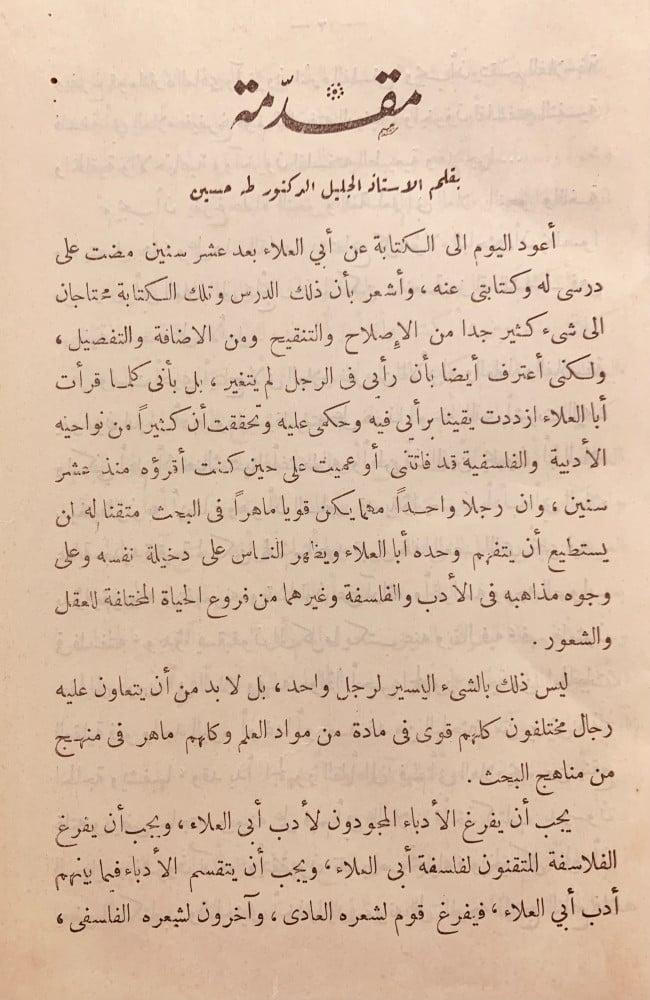 مقدّمة
بقلم الاستاذ الجليل الدكتور طه حسين
أعود اليوم الى الكتابة عن أبي العلاء بعد عشر سنين مضت على
درسى له وكتابتى عنه ، وأشعر بأن ذلك الدرس وتلك الكتابة محتاجان
الى شىء كثير جدا من الإصلاح والتنقيح ومن الاضافة والتفصيل ،
ولكنى أعترف أيضا بأن رأبي فى الرجل لم يتغير ، بل بأنى كلما قرأت
أبا العلاء ازددت يقينا برأبي فيه وحكمى عليه وتحققت أن كثيراً من نواحيه
الأدبية والفلسفية قد فاتتنى أو عميت على حين كنت أقرؤه منذ عشر
سنين ، وان رجلا واحداً مهما يكن قويا ماهراً فى البحث متقنا له لن
يستطيع أن يتفهم وحده أبا العلاء ويظهر الناس على دخيلة نفسه وعلى
وجوه مذاهبه فى الأدب والفلسفة وغيرهما من فروع الحياة المختلفة للعقل
والشعور .
ليس ذلك بالشىء اليسير لرجل واحد ، بل لا بد من أن يتعاون عليه
رجال مختلفون كلهم قوى فى مادة من مواد العلم وكلهم ماهر فى منهج
من مناهج البحث .
يجب أن يفرغ الأدباء المجودون لأدب أبى العلاء ، ويجب أن يفرغ
الفلاسفة المتقنون لفلسفة أبى العلاء ، ويجب أن يتقسم الأدباء فيما بينهم
أدب أبي العلاء ، فيفرغ قوم لشعره العادى ، وآخرون لشعره الفلسفى ،